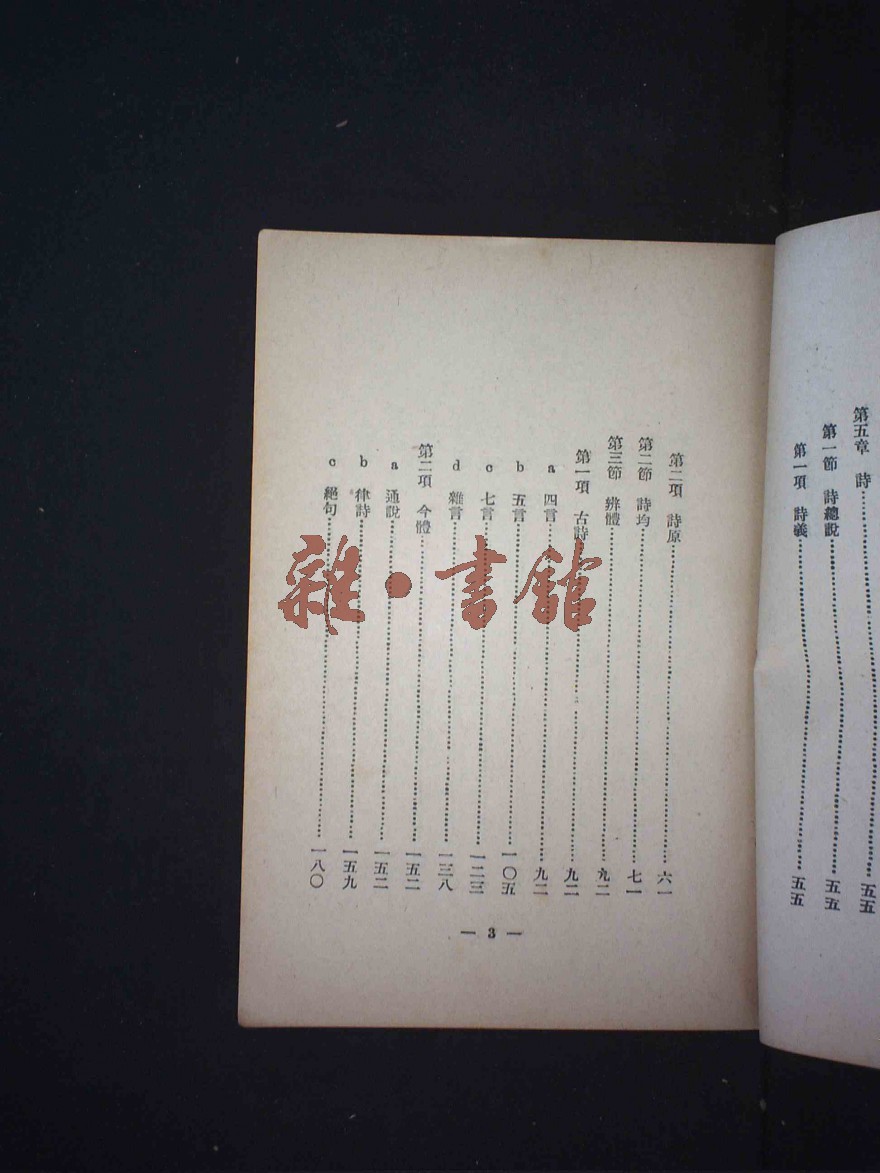 第五章 詩……五五
第一節 詩總說……五五
第一項 詩義……五五
第二項 詩原……六一
第二節 詩均……七一
第三節 辨體……九二
第一項 古詩……九二
a 四言……九二
b 五言……一〇五
c 七言……一二三
d 雜言……一三八
第二項 今體……一五二
a 通說……一五二
b 律詩……一五九
c 絕句……一八〇
— 3 —
雜·書館